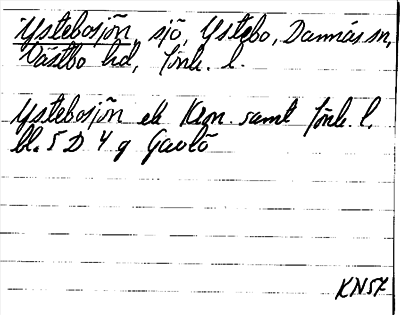 Ystebosjön, sjö, Ystebo, Dannäs sn,
Västbo hd, Jönk. l.
Ystebosjön ek Kn. samt Jönk. l.
bl. 5 D 4 g Gavlö
KN57